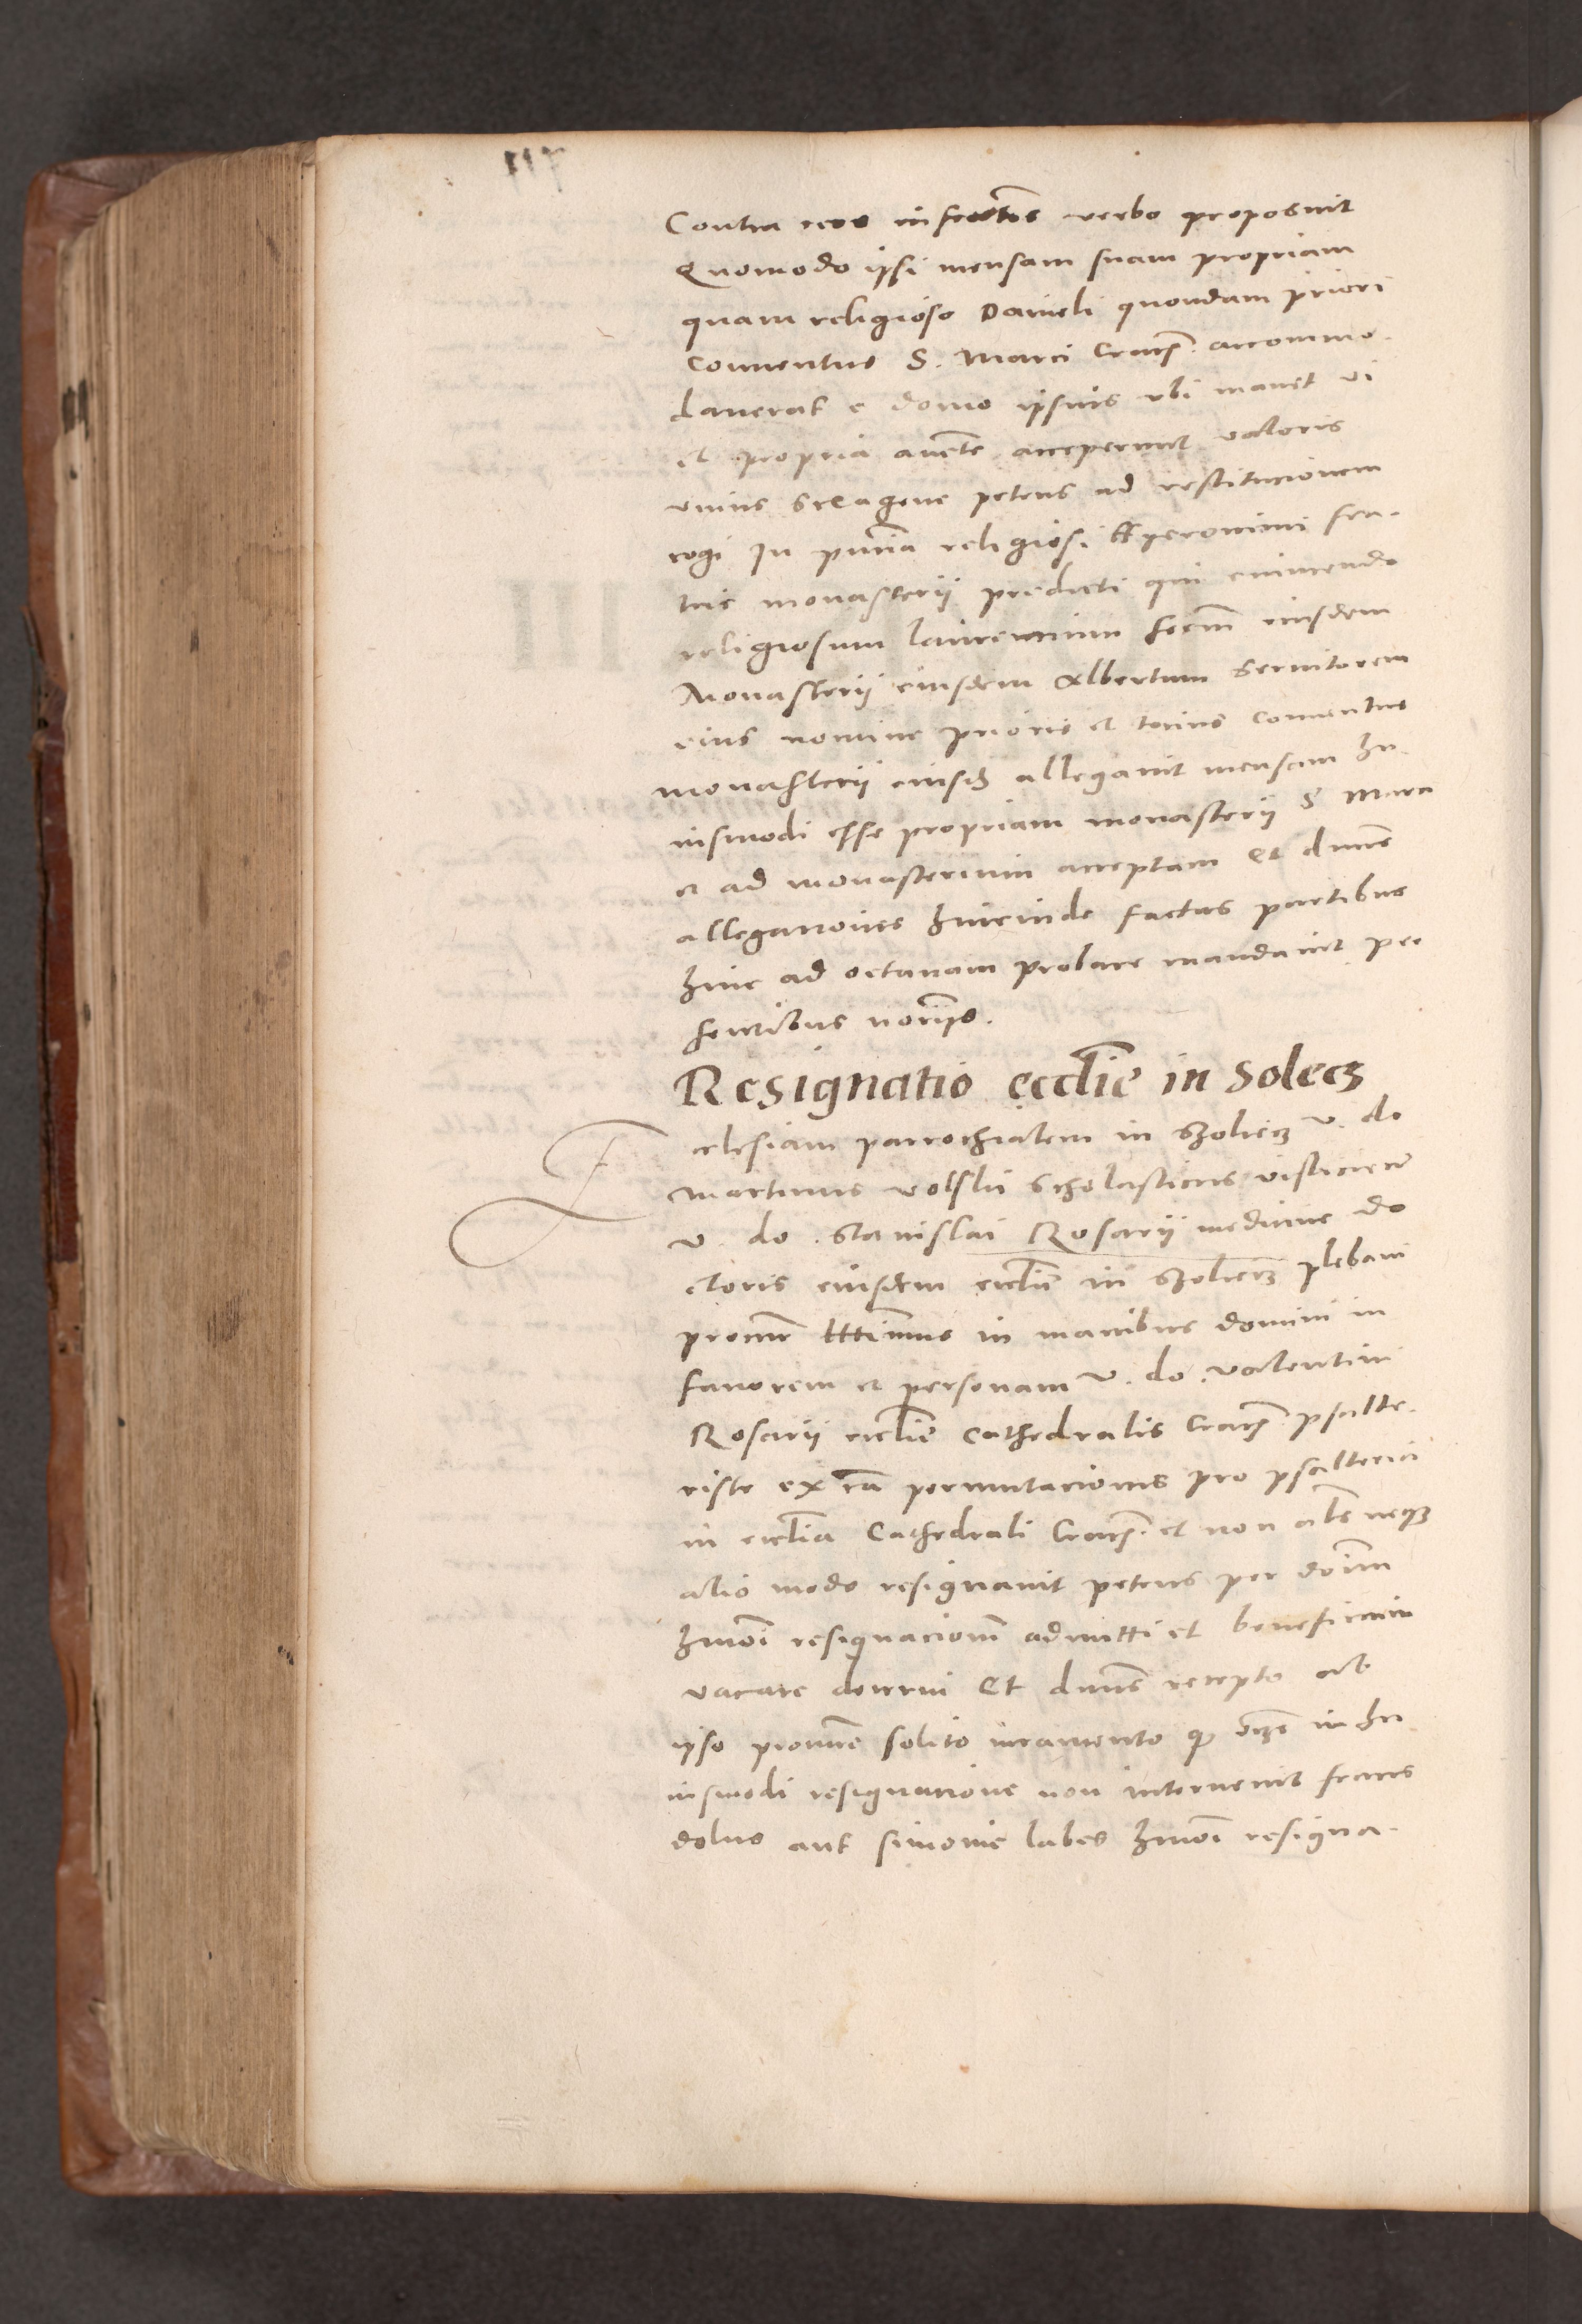 Contra reos infractos verbo proposuit
Quomodo ipsi mensam suam propriam
quam religioso Danieli quondam priori
Conuentus S. Marci Cracẽ. accommo-
dauerat e domo ipsius vbi manet vi
et propria aucte acceperunt valoris
vnius sexagene petens ad restitucionem
cogi In pñcia religiosi Hyeronimi fra-
tris monasterii predicti qui euincendo
religiosum laurentium frem eiusdem
Monasterii eiusdem Albertum Seruitorem
eius nomine prioris et tocius conuentus
monasterii eiusd allegauit mensam hu-
iusmodi esse propriam monasterii S Marci
et ad monasterium acceptam Et dnus
allegaciones hincinde factas partibus
hinc ad octauam probare mandauit pre
sentibus norijs.
Resignatio ecclie in Solecz
Ecclesiam parrochialem in Szoliecz v. do
Martinus volski Scholasticus visliciens
v. do. Stanislai Rosarii medicine do
ctoris eiusdem ecclie in Szoliecz plebani
procur lttimus in manibus domini in
fauorem et personam v. do. valentini
Rosarii ecclie Cathedralis Cracẽ. psalte-
riste ex ca permutacionis pro psalteria
in ecclia Cathedrali Cracẽ. et non als neqz
alio modo resignauit petens per dnum
hmoi resignacionem admitti et beneficium
vacare decerni Et dnus recepto ab
ipso procure solito iuramento qz in hu
iusmodi resignacione non interuenit fraus
dolus aut simonie labes hmoi resigna-